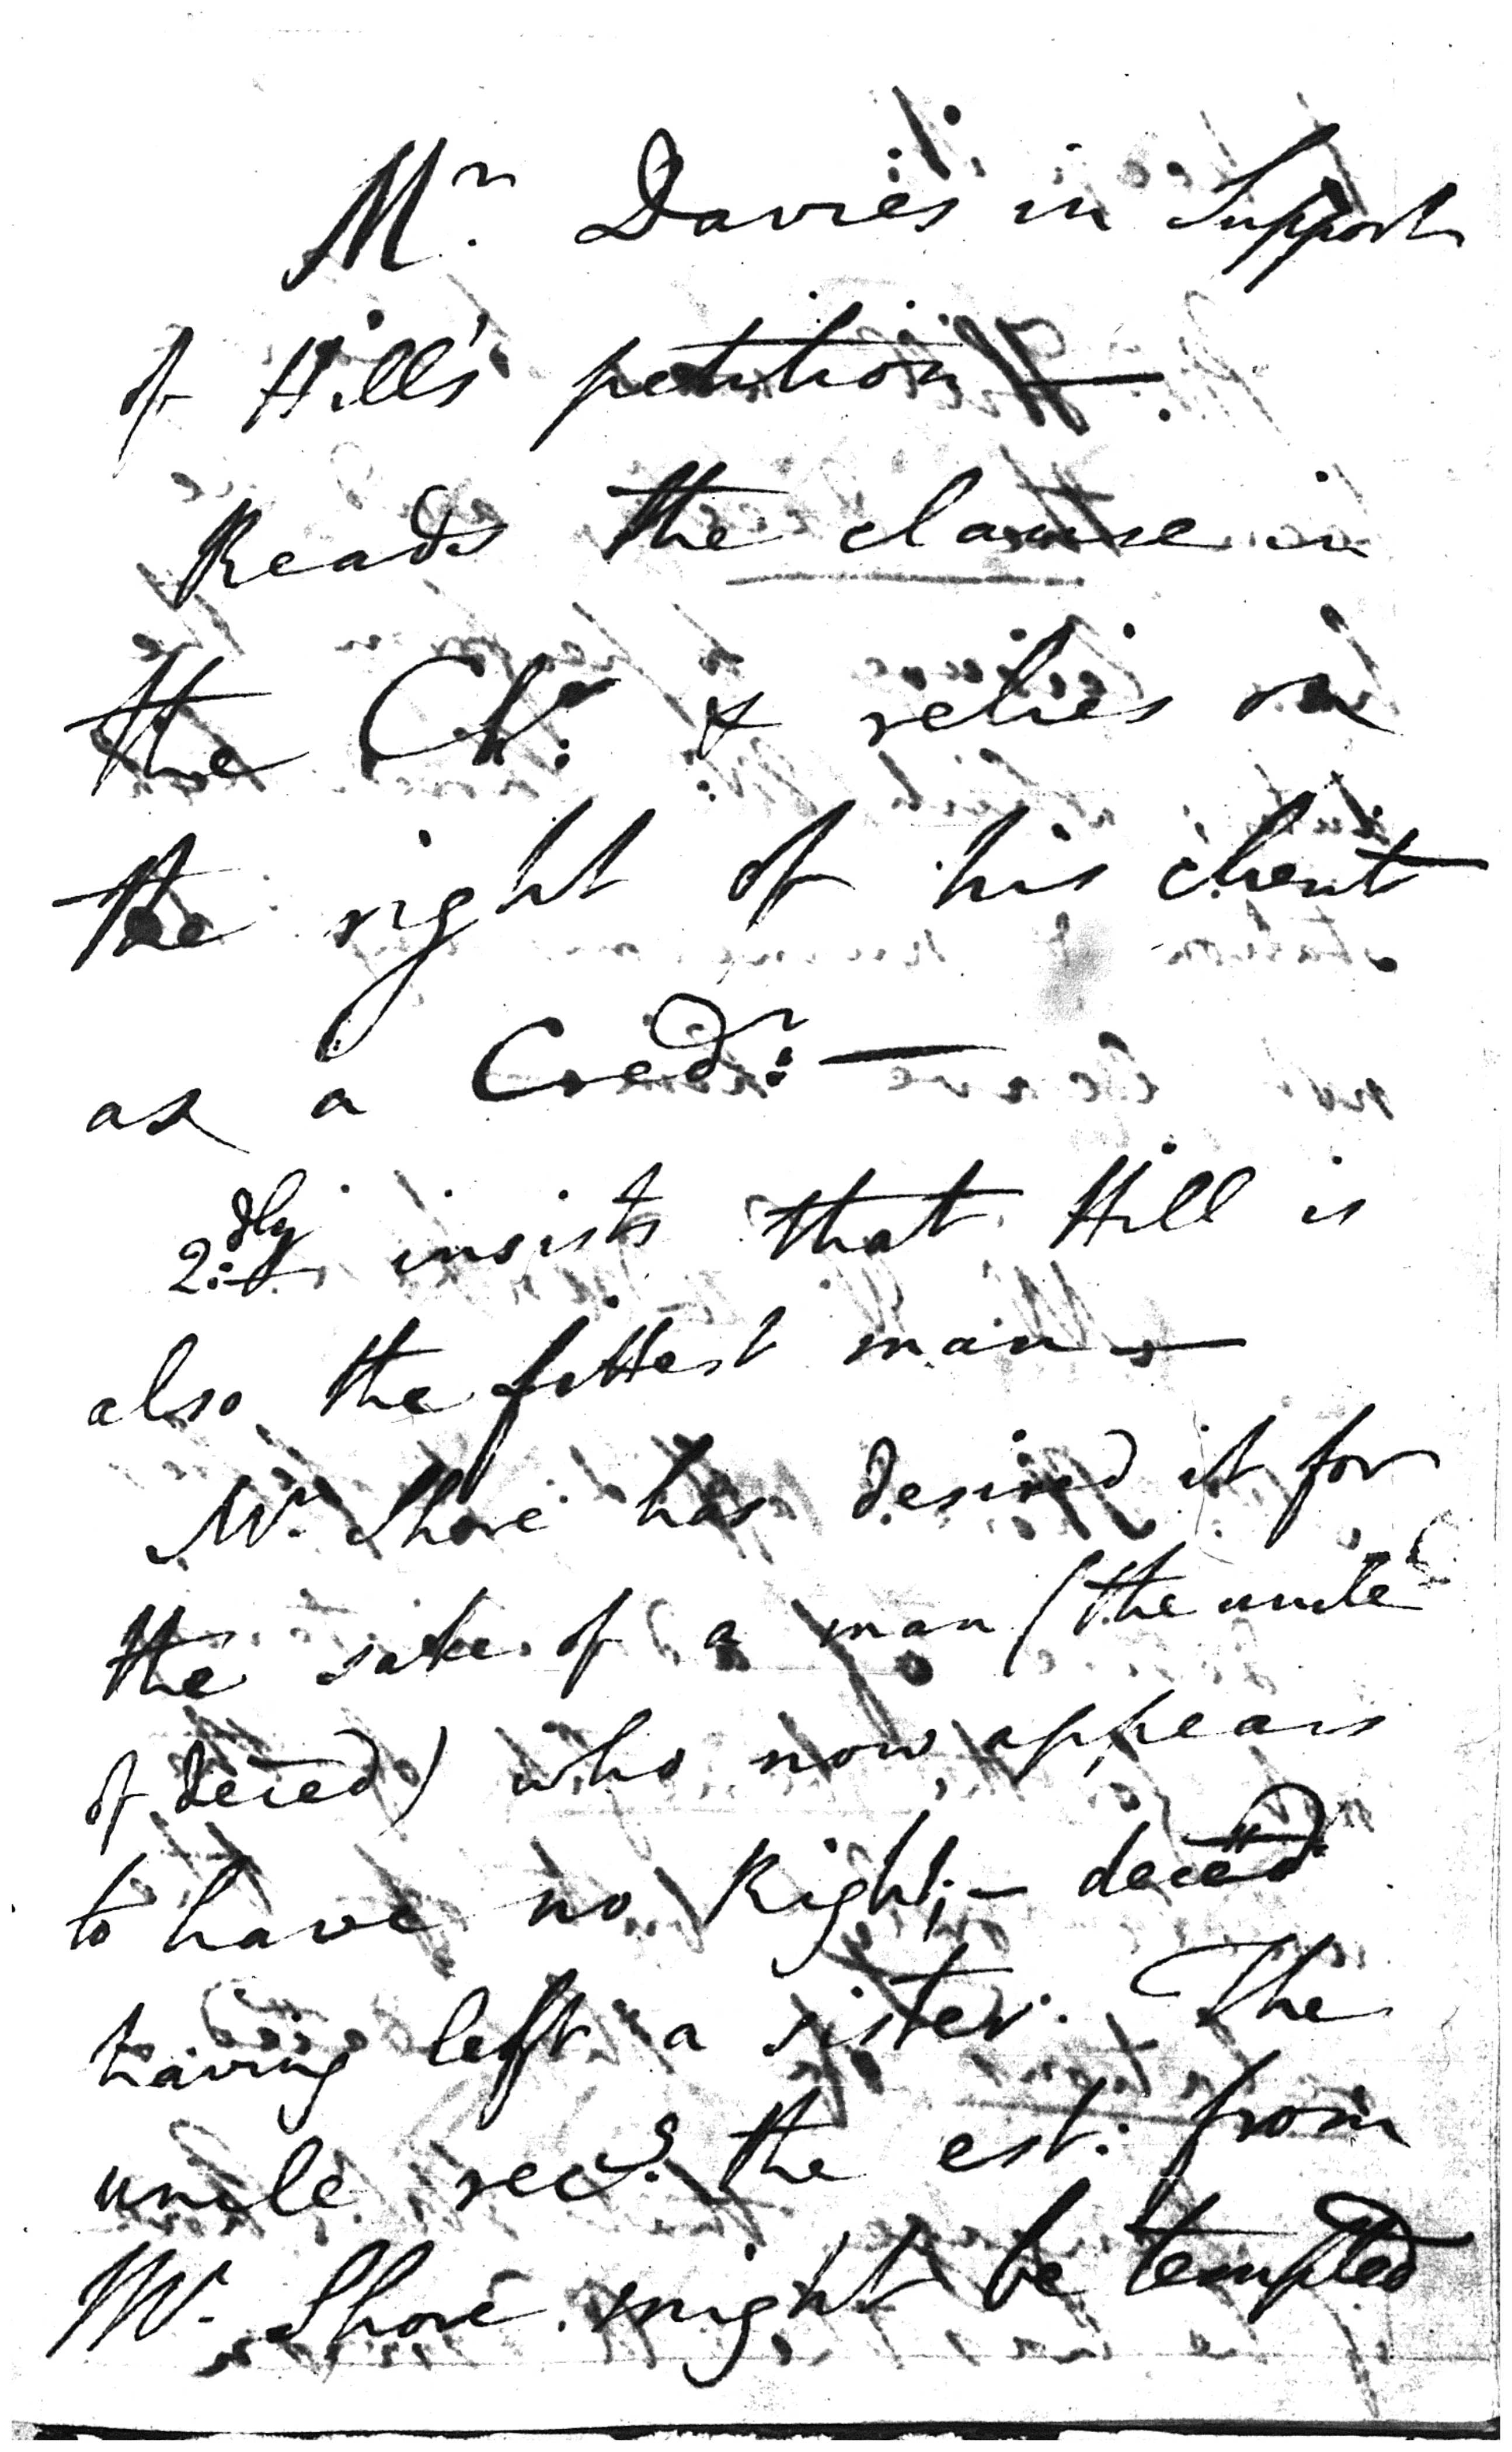 Mr. Davies in Support
of Hill's petition —.
Reads the clause in
the Chr: & relies on
the right of his client
as a Credr: —
2:dly insists that Hill is
also the fittest man —
Mr. Shore has desired it for
the sake of a man (the uncle
of deced) who now appears
to have no Right; — deced
having left a sister. The
uncle recd. the est: from
Mr. Shore might be tempted